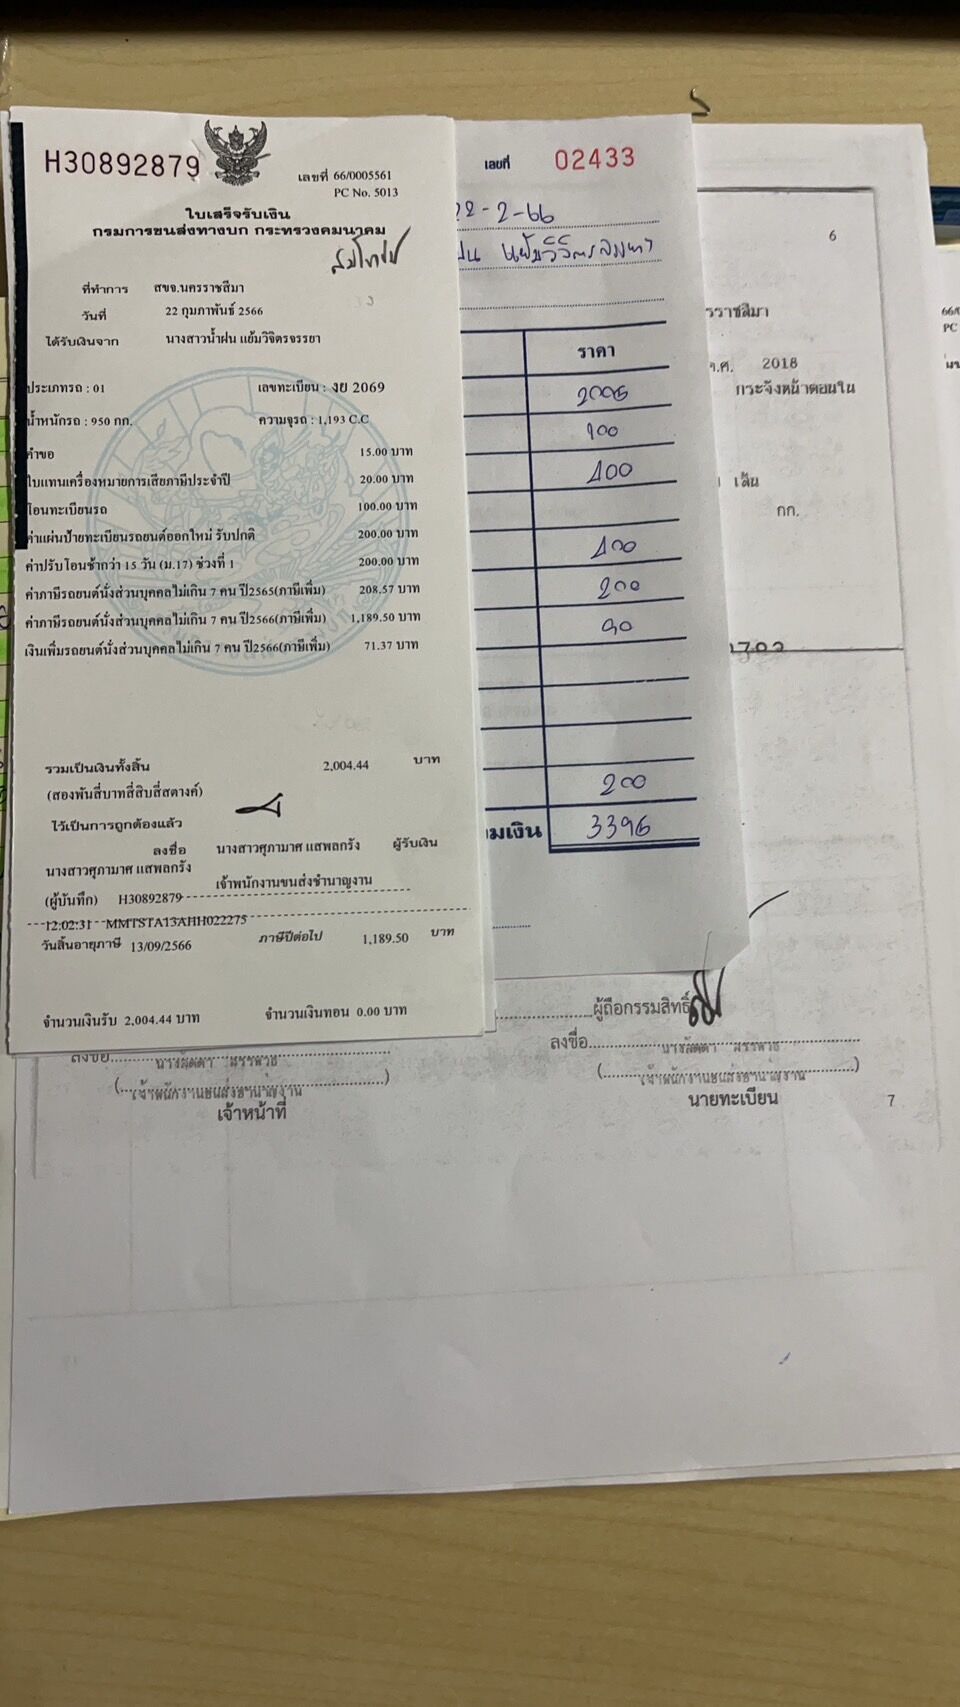 H30892879
เลขที่ 66/0005561
PC No. 5013
ใบเสร็จรับเงิน
กรมการขนส่งทางบก กระทรวงคมนาคม
ที่ทำการ สขจ.นครราชสีมา
วันที่ 22 กุมภาพันธ์ 2566
ได้รับเงินจาก นางสาวน้ำฝน แย้มวิจิตรจรรยา
ประเภทรถ : 01 เลขทะเบียน : งย 2069
น้ำหนักรถ : 950 กก. ความจุรถ : 1,193 C.C
คำขอ 15.00 บาท
ใบแทนเครื่องหมายการเสียภาษีประจำปี 20.00 บาท
โอนทะเบียนรถ 100.00 บาท
ค่าแผ่นป้ายทะเบียนรถยนต์ออกใหม่ รับปกติ 200.00 บาท
ค่าปรับโอนช้ากว่า 15 วัน (ม.17) ช่วงที่ 1 200.00 บาท
ค่าภาษีรถยนต์นั่งส่วนบุคคลไม่เกิน 7 คน ปี2565(ภาษีเพิ่ม) 208.57 บาท
ค่าภาษีรถยนต์นั่งส่วนบุคคลไม่เกิน 7 คน ปี2566(ภาษีเพิ่ม) 1,189.50 บาท
เงินเพิ่มรถยนต์นั่งส่วนบุคคลไม่เกิน 7 คน ปี2566(ภาษีเพิ่ม) 71.37 บาท
รวมเป็นเงินทั้งสิ้น 2,004.44 บาท
(สองพันสี่บาทสี่สิบสี่สตางค์)
ไว้เป็นการถูกต้องแล้ว
ลงชื่อ นางสาวศุภามาศ แสพลกรัง ผู้รับเงิน
นางสาวศุภามาศ แสพลกรัง
เจ้าพนักงานขนส่งชำนาญงาน
(ผู้บันทึก) H30892879
12:02:31 MMTSTA13AHH022275
วันสิ้นอายุภาษี 13/09/2566 ภาษีปีต่อไป 1,189.50 บาท
จำนวนเงินรับ 2,004.44 บาท จำนวนเงินทอน 0.00 บาท
เลขที่ 02433
22-2-66
ราคา
2005
100
400
400
200
90
200
มเงิน 3395
6
รราชสีมา
ค.ศ. 2018
กระจังหน้าตอนใน
เส้น
กก.
ผู้ถือกรรมสิทธิ์
ลงชื่อ
ลงชื่อ
เจ้าหน้าที่
นายทะเบียน
7
66/0
PC